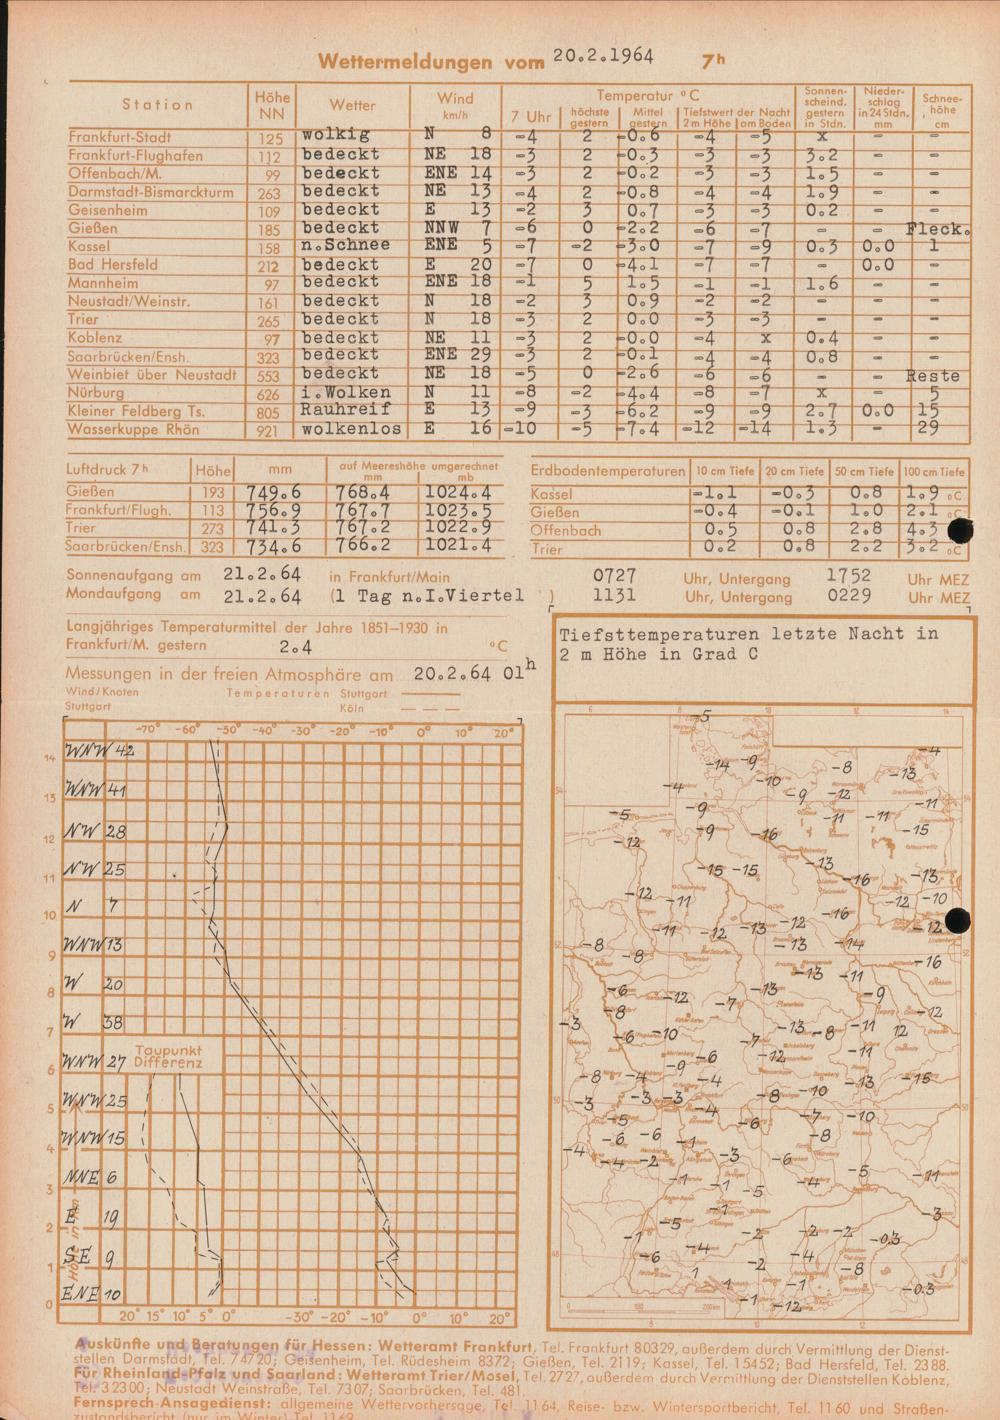 Wettermeldungen vom 20.2.1964 7h
Station Höhe NN Wetter Wind km/h Temperatur °C 7 Uhr höchste gestern Mittel gestern Tiefstwert der Nacht 2m Höhe am Boden Sonnen-scheind. gestern in Stdn. Nieder-schlag in 24 Stdn. mm Schnee-höhe cm
Frankfurt-Stadt 125 wolkig N 8 -4 2 -0.6 -4 -5 x - -
Frankfurt-Flughafen 112 bedeckt NE 18 -3 2 -0.3 -3 -3 3.2 - -
Offenbach/M. 99 bedeckt ENE 14 -3 2 -0.2 -3 -3 1.5 - -
Darmstadt-Bismarckturm 263 bedeckt NE 13 -4 2 -0.8 -4 -4 1.9 - -
Geisenheim 109 bedeckt E 13 -2 3 0.7 -3 -3 0.2 - -
Gießen 185 bedeckt NNW 7 -6 0 -2.2 -6 -7 - - Fleck.
Kassel 158 n.Schnee ENE 5 -7 -2 -3.0 -7 -9 0.3 0.0 1
Bad Hersfeld 212 bedeckt E 20 -7 0 -4.1 -7 -7 - 0.0 -
Mannheim 97 bedeckt ENE 18 -1 5 1.5 -1 -1 1.6 - -
Neustadt/Weinstr. 161 bedeckt N 18 -2 3 0.9 -2 -2 - - -
Trier 265 bedeckt N 18 -3 2 0.0 -3 -3 - - -
Koblenz 97 bedeckt NE 11 -3 2 -0.0 -4 x 0.4 - -
Saarbrücken/Ensh. 323 bedeckt ENE 29 -3 2 -0.1 -4 -4 0.8 - -
Weinbiet über Neustadt 553 bedeckt NE 18 -5 0 -2.6 -6 -6 - - Reste
Nürburg 626 i.Wolken N 11 -8 -2 -4.4 -8 -7 x - 5
Kleiner Feldberg Ts. 805 Rauhreif E 13 -9 -3 -6.2 -9 -9 2.7 0.0 15
Wasserkuppe Rhön 921 wolkenlos E 16 -10 -5 -7.4 -12 -14 1.3 - 29
Luftdruck 7h Höhe mm auf Meereshöhe umgerechnet mm mb
Gießen 193 749.6 768.4 1024.4
Frankfurt/Flugh. 113 756.9 767.7 1023.5
Trier 273 741.3 767.2 1022.9
Saarbrücken/Ensh. 323 734.6 766.2 1021.4
Erdbodentemperaturen 10 cm Tiefe 20 cm Tiefe 50 cm Tiefe 100 cm Tiefe
Kassel -1.1 -0.3 0.8 1.9 °C
Gießen -0.4 -0.1 1.0 2.1 °C
Offenbach 0.5 0.8 2.8 4.3
Trier 0.2 0.8 2.2 3.2 °C
Sonnenaufgang am 21.2.64 in Frankfurt/Main 0727 Uhr, Untergang 1752 Uhr MEZ
Mondaufgang am 21.2.64 (1 Tag n.I.Viertel ) 1131 Uhr, Untergang 0229 Uhr MEZ
Langjähriges Temperaturmittel der Jahre 1851-1930 in
Frankfurt/M. gestern 2.4 °C
Messungen in der freien Atmosphäre am 20.2.64 01h
Wind/Knoten Temperaturen Stuttgart
Stuttgart Köln
-70° -60° -50° -40° -30° -20° -10° 0° 10° 20°
14 WNW 42
13 WNW 41
12 NW 28
11 NW 25
10 N 7
9 WNW 13
8 W 20
7 W 38
6 WNW 27 Taupunkt Differenz
5 WNW 25
4 WNW 15
3 NNE 6
2 E 19
1 SE 9
0 ENE 10
20° 15° 10° 5° 0° -30° -20° -10° 0° 10° 20°
Tiefsttemperaturen letzte Nacht in
2 m Höhe in Grad C
-5
-4
-14 -9 -8 -13
-4 -10 -9 -12
-5 -9 -11 -11 -11
-12 -9 -16 -15
-15 -15 -13 -16 -13
-12 -11 -16 -12 -10
-11 -12 -13 -12 -12
-8 -8 -13 -14 -16
-13 -11
-6 -12 -7 -13 -9
-8 -12
-3 -6 -10 -7 -13 -8 -11 12
-9 -6 -12 -11
-8 -4 -4 -10 -13 -15
-3 -3 -3 -8
-5 -4 -6 -7 -10
-6 -6 -1 -8
-4 -4 -2 -3 -6 -5 -11
-1 -1 -5 -4
-1 -3
-1 -5 -2 -2 -2 -0.3
-6 -4 -2 -4 -8
1 1 -1 -0.3
-1 -12
Auskünfte und Beratungen für Hessen: Wetteramt Frankfurt, Tel. Frankfurt 80329, außerdem durch Vermittlung der Dienst-
stellen Darmstadt, Tel. 74720; Geisenheim, Tel. Rüdesheim 8372; Gießen, Tel. 2119; Kassel, Tel. 15452; Bad Hersfeld, Tel. 2388.
Für Rheinland-Pfalz und Saarland: Wetteramt Trier/Mosel, Tel. 2727, außerdem durch Vermittlung der Dienststellen Koblenz,
Tel. 32300; Neustadt Weinstraße, Tel. 7307; Saarbrücken, Tel. 481.
Fernsprech-Ansagedienst: allgemeine Wettervorhersage, Tel. 1164, Reise- bzw. Wintersportbericht, Tel. 1160 und Straßen-
zustandsbericht (nur im Winter) Tel. 1169